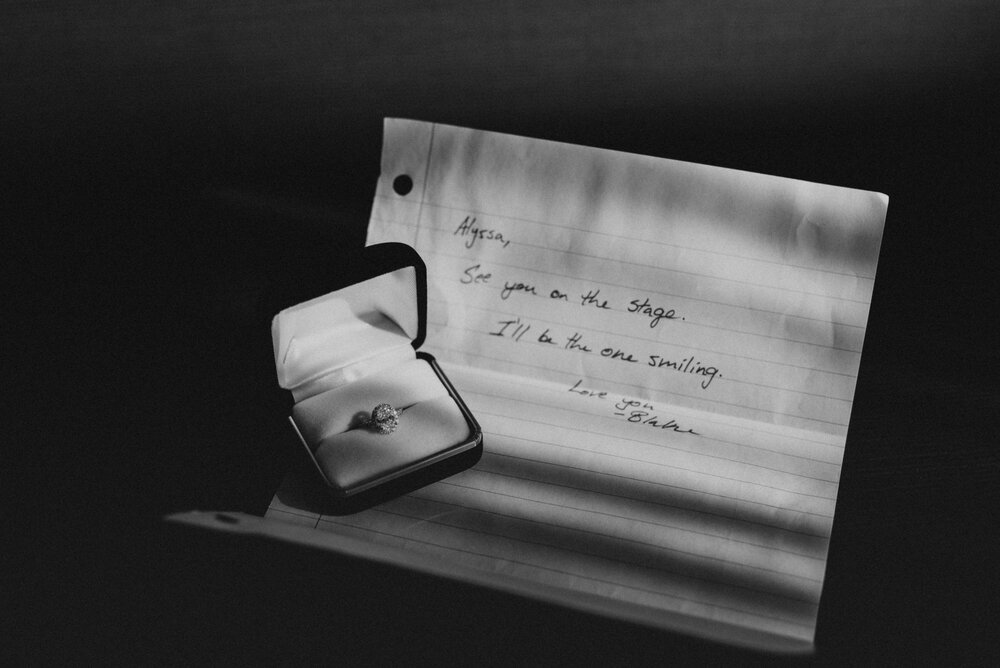 Alyssa,
See you on the stage.
I'll be the one smiling.
Love you
-Blake